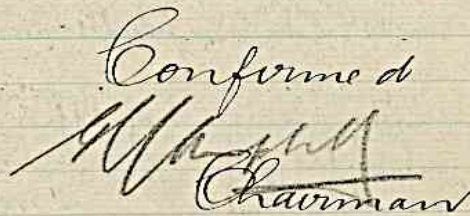 Confirmed
Chairman